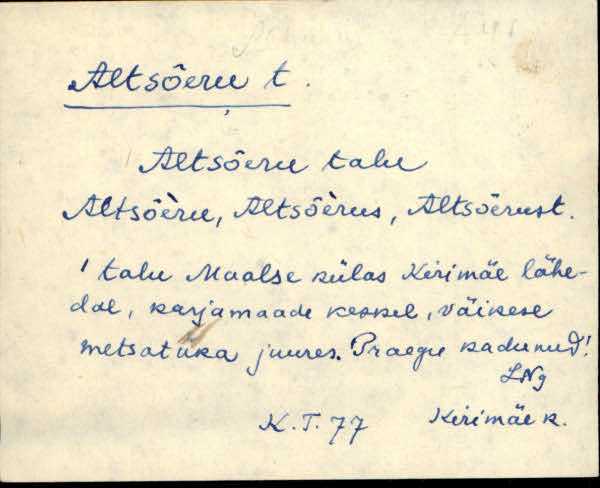 Altsõeru t.
Altsõeru talu
Altsõèru, Altsõèrus, Altsõerust.
talu Maalse külas Kirimäe lähe-
dal, karjamaade keskel, väikese
metsatuka juures. Praegu kadunud!
LNg
K.T.77 Kirimäe k.